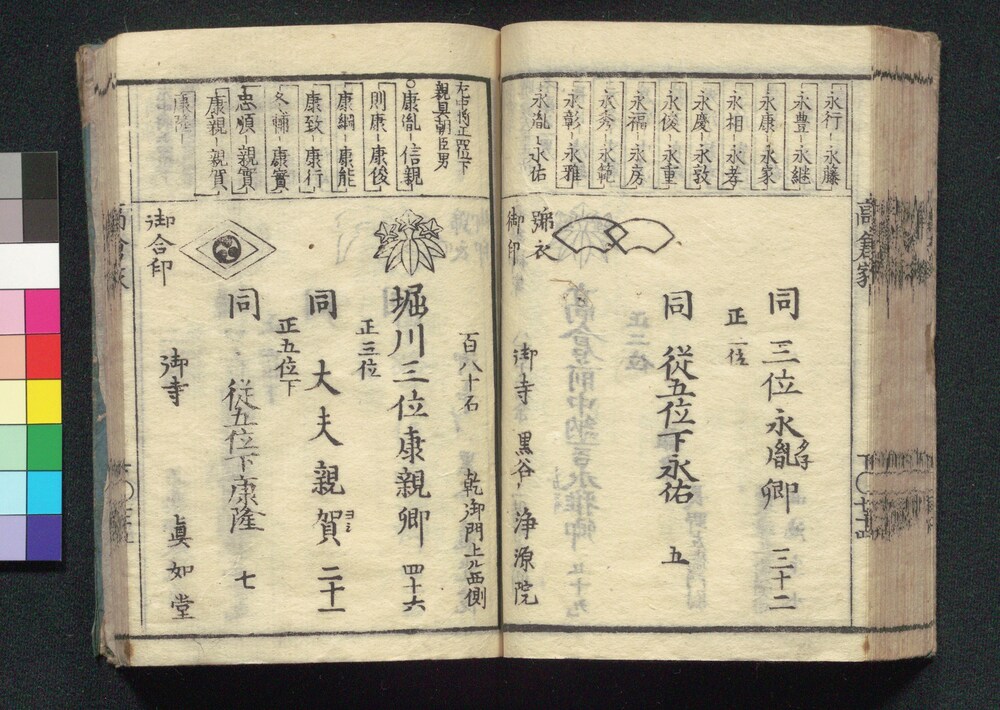 高倉家
永行 永藤
永豊 永継
永康 永家
永相 永孝
永慶 永敦
永俊 永重
永福 永房
永秀 永範
永彰 永雅
永胤 永佑
同 三位永胤卿 三十二
タネ
正一位
同 従五位下永佑 五
御印
御寺 黒谷 浄源院
左中将正四位下
親具朝臣男
康胤 信親
則康 康俊
康綱 康能
康致 康行
冬輔 康實
忠順 親實
康親 親賀
康隆
百八十石 乾御門上ル西側
堀川三位康親卿 四十六
正三位
同 大夫親賀 二十一
ヨシ
正五位下
同 従五位下康隆 七
御合印
御寺 眞如堂